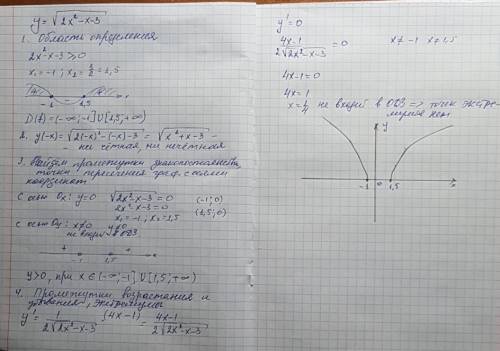 y = √(2x² - x - 3)
1. Область определения
2x² - x - 3 ≥ 0
x₁ = -1 ; x₂ = 3/2 = 1,5
-1 1,5 x
D(f) = (-∞; -1] U [1,5; +∞)
2. y(-x) = √(2(-x)² - (-x) - 3) = √(x² + x - 3) -
- ни чётная, ни нечётная
3. Найдем промежутки знакопостоянства,
точки пересечения граф. с осями
координат
С осью Ox: y=0 √(2x² - x - 3) = 0 (-1; 0)
2x² - x - 3 = 0 (1,5; 0)
x₁ = -1, x₂ = 1,5
с осью Oy: x≠0 y≠0
не входит в ОДЗ
+ - +
-1 1,5
y>0, при x ∈ (-∞; -1] U [1,5; +∞)
4. Промежутки возрастания и
убывания, экстремумы
y' = 1/(2√(2x² - x - 3)) · (4x-1) = (4x-1)/(2√(2x² - x - 3))
y' = 0
(4x-1)/(2√(2x² - x - 3)) = 0 x ≠ -1 x ≠ 1,5
4x-1=0
4x=1
x = 1/4 не входит в ОДЗ => точек экстре-
мумов нет
y
-1 0 1,5 x